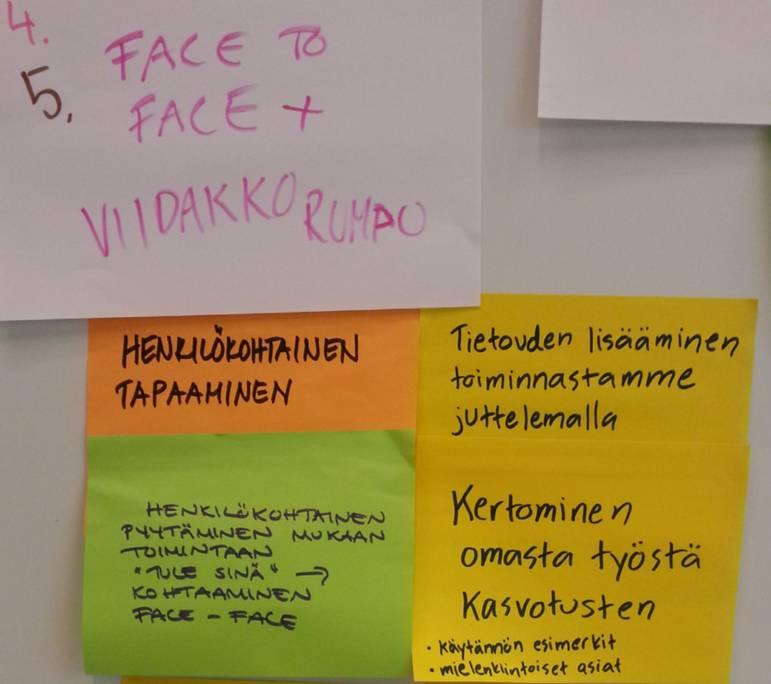 4.
5. FACE TO
FACE +
VIIDAKKO RUMPU
HENKILÖKOHTAINEN
TAPAAMINEN
Tietouden lisääminen
toiminnastamme
juttelemalla
HENKILÖKOHTAINEN
PYYTÄMINEN MUKAAN
TOIMINTAAN
"TULE SINÄ" →
KOHTAAMINEN
FACE - FACE
Kertominen
omasta työstä
Kasvotusten
• Käytännön esimerkit
• mielenkiintoiset asiat